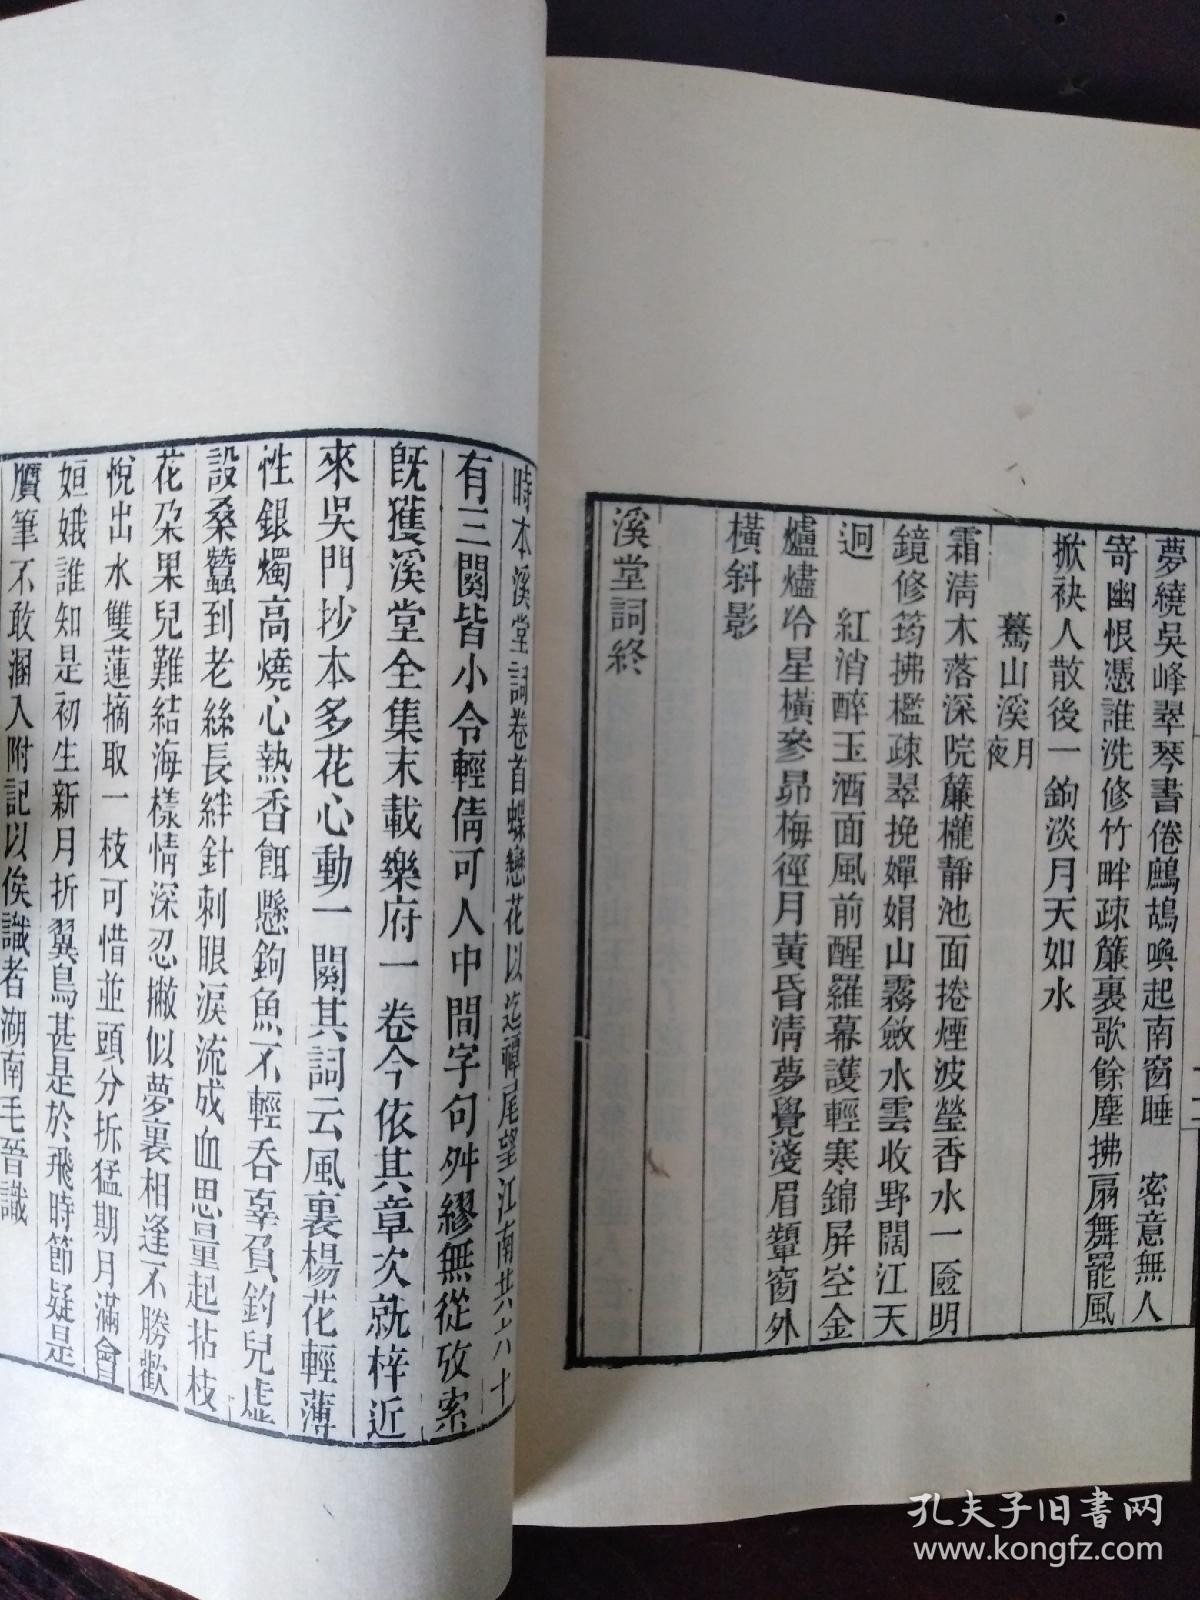 夢繞吳峰翠琴書倦鷓鴣喚起南窗睡　密意無人
寄幽恨憑誰洗修竹畔疎簾裏歌餘塵拂扇舞罷風
掀袂人散後一鉤淡月天如水
驀山溪月夜
霜淸木落深院簾櫳靜池面捲煙波瑩香水一匳明
鏡修筠拂檻疎翠挽嬋娟山霧斂水雲收野闊江天
迥　紅消醉玉酒面風前醒羅幕護輕寒錦屏空金
爐燼冷星橫參昴梅徑月黃昏淸夢覺淺眉顰窗外
橫斜影
溪堂詞終
時本溪堂詞卷首蝶戀花以迄禪尾望江南共六十
有三闋皆小令輕倩可人中間字句舛繆無從攷索
旣獲溪堂全集末載樂府一卷今依其章次就梓近
來吳門抄本多花心動一闋其詞云風裏楊花輕薄
性銀燭高燒心熱香餌懸鉤魚不輕吞辜負釣兒虛
設桑蠶到老絲長絆針刺眼淚流成血思量起拈枝
花朶果兒難結海樣情深忍撇似夢裏相逢不勝歡
悅出水雙蓮摘取一枝可惜並頭分拆猛期月滿會
姮娥誰知是初生新月折翼鳥甚是於飛時節疑是
贋筆不敢溷入附記以俟識者湖南毛晉識
孔夫子旧书网
www.kongfz.com